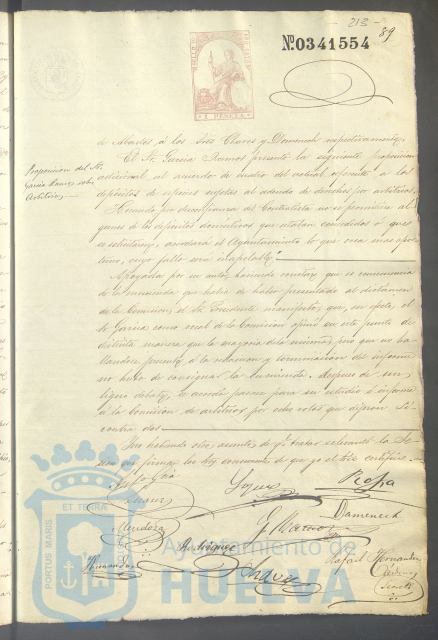 213
89
Nº 0341554
1 PESETA
de Abades, á los Sres Chaves y Domenech respectivamente.
El Sr. Garcia Ramos presentó la siguiente proposicion
Proposicion del Sr.
Garcia Ramos sobre
Arbitrios
adicional al acuerdo de
referente á los
depósitos de especies sujetas al adeudo de derechos por arbitrios
Cuando por desconfianza del Contratista no se permitiere al
guno de los depósitos domésticos que estaban concedidos ó que
se solicitaren, acordará el Ayuntamiento lo que crea mas opor
tuno, cuyo fallo será inapelable.
Apoyada por su autor, haciendo constar que es consecuencia
de la enmienda que habia de haber presentado al dictámen
de la Comision, el Sr. Presidente manifestó, que, en efecto, el
Sr. Garcia como vocal de la Comision opinó en este punto de
distinta manera que la mayoria de la misma, pero que no ha
llandose presente á la redaccion y terminacion del informe
no hubo de consignar la enmienda. Despues de un
ligero debate, se acordó pasase para su estudio é informe
á la Comision de arbitrios por ocho votos que dijeron Sí
contra dos
Y no habiendo otros asuntos de qe. tratar se levantó la Se
sion que firman los
concurrentes de que yo el Srio certifico.
Rodriguez
G. Ramos
Domenech
Mendoza
Hernandez
Chaves
Rafael Hernandez
PORTUS MARIS
ET TERRA
Ayuntamiento de
HUELVA